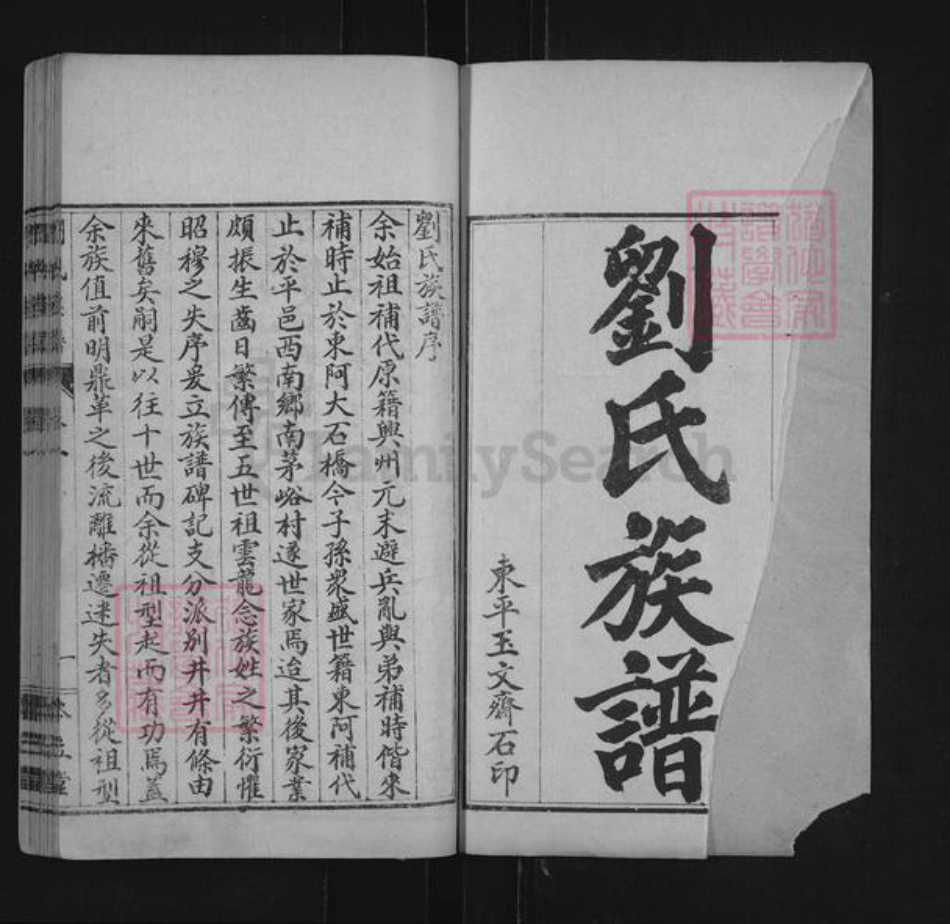 劉氏族譜
東平玉文齋石印
劉氏族譜序
余始祖補代原籍興州元末避兵亂與弟補時偕來
補時止於東阿大石橋今子孫衆盛世籍東阿補代
止於平邑西南鄉南茅峪村遂世家焉迨其後家業
頗振生齒日繁傳至五世祖雲龍念族姓之繁衍懼
昭穆之失序爰立族譜碑記支分派别井井有條由
來舊矣嗣是以往十世而余從祖型起而有功焉蓋
余族值前明鼎革之後流離播遷迷失者多從祖型
FamilySearch